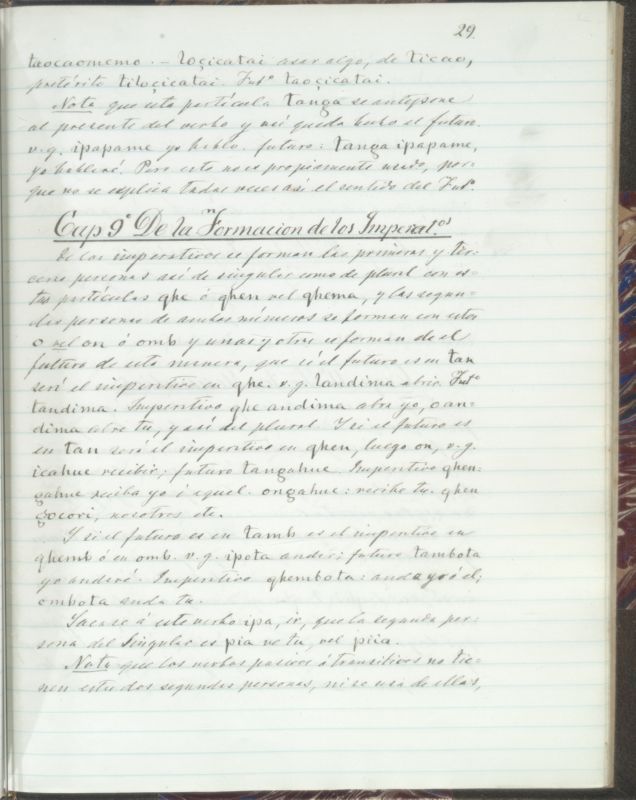 29
taocaomemo. – loçicatai asar algo, de ticao,
pretérito tiloçicatai. Futo taoçicatai.
Nota que esta partícula tanga se antepone
al presente del verbo y así queda hecho el futuro.
v.g. ipapame yo hablo. futuro: tanga ipapame,
yo hablaré. Pero esto no es propiamente usado, por-
que no se explica todas veces así el sentido del Futo
Cap 9º De la Formacion de los Imperat.os
De los imperativos se forman las primeras y ter-
ceras personas así de singular como de plural con es-
tas partículas qhe ó qhen vel qhema, y las segun-
das personas de ambos números se forman con estos
o vel on ó omb y unas y otras se forman de el
futuro de esta manera, que si el futuro es en tan
será el imperativo en qhe. v.g. landima abrir. Futo
tandima. Imperativo qhe andima abra yo, o an-
dima abre tu, y así del plural. Y si el futuro es
en tan será el imperativo en qhen, luego on, v.g.
icahue recibir; futuro tangahue. Imperativo qhen-
gahue reciba yo ó aquel. ongahue: recibe tu. qhen
gocori, nosotros etc.
Y si el futuro es en tamb es el imperativo en
qhemb ó en omb. v.g. ipota andar; futuro tambota
yo andaré. Imperativo qhembota: anda yo ó él;
ombota anda tu.
Sacase á este verbo ipa, ir, que la segunda per-
sona del Singular es pia ve tu, vel piia.
Nota que los verbos pasivos ó transitivos no tie-
nen estas dos segundas personas, ni se usa de ellas,